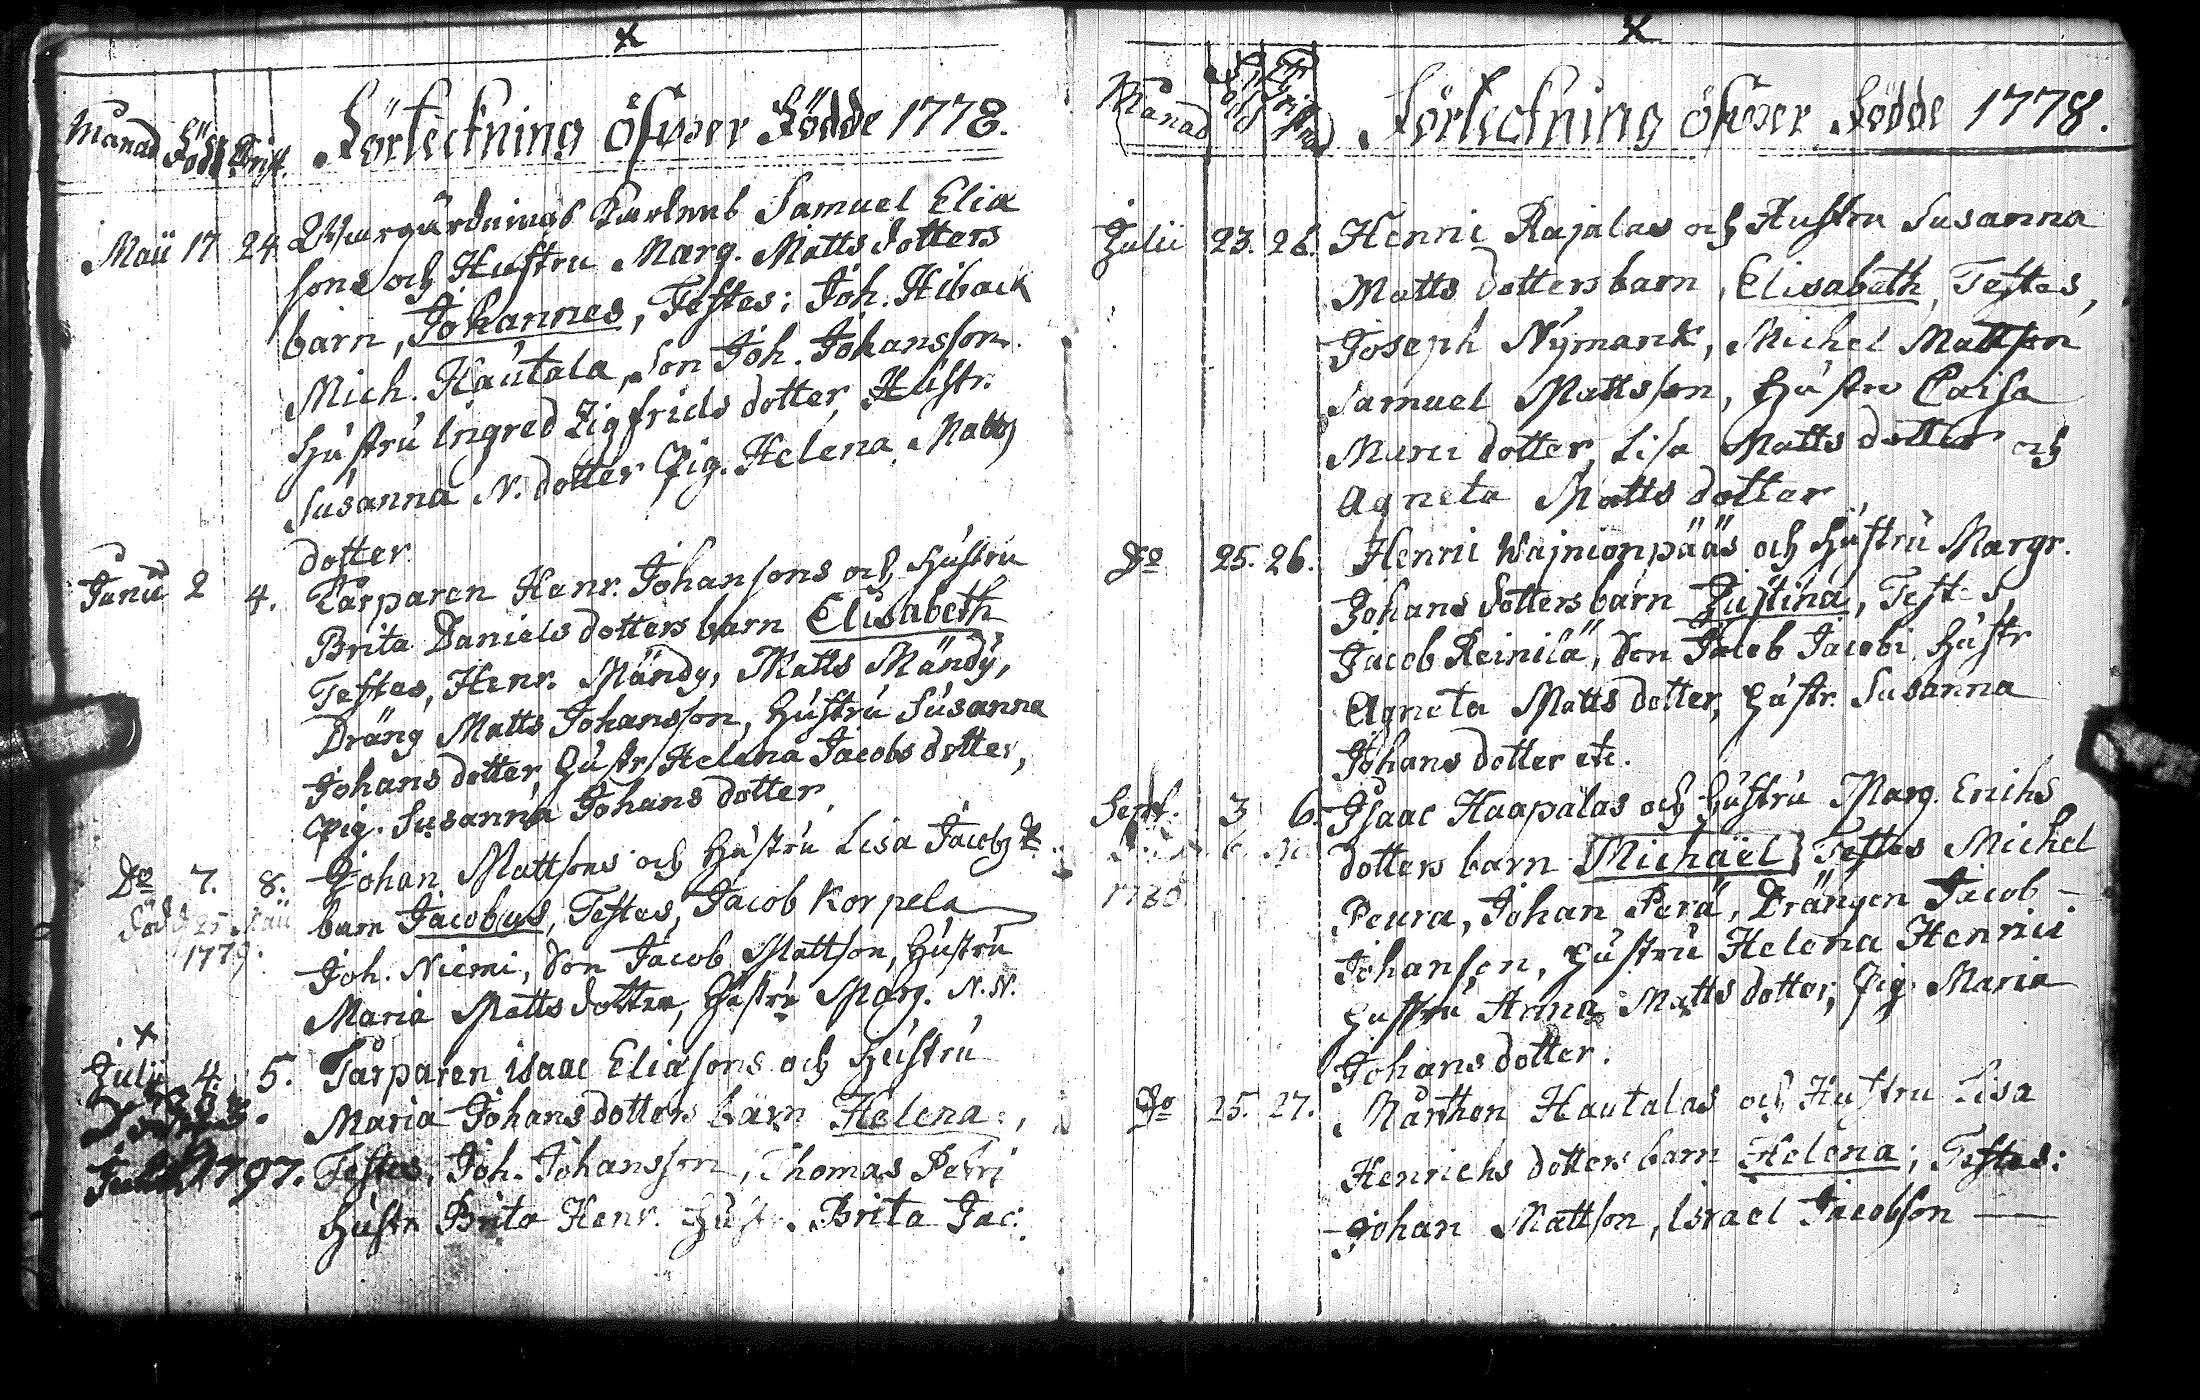 Månad Född Christ. Förteckning öfwer Födde 1778.
Maii 17 24 Karlens Samuel Elia
sons och Hustru Marg. Matts dotters
barn, Johannes, Testes: Joh. Kiback
Mich. Hautala, Son Joh. Johansson.
Hustru Ingred Zigfrids dotter, Hustr.
Susanna N. dotter Pig. Helena Matts
dotter.
Junii 2 4. Torparen Henr. Johansons och Hustru
Brita Daniels dotters barn Elisabeth
Testes, Henr. Mändy, Matts Mändy,
Dräng Matts Johansson, Hustru Susanna
Johans dotter, Hustr Helena Jacobs dotter,
Pig. Susanna Johans dotter.
Do 7. 8. Johan Mattsons och Hustru Lisa Jacobs D.
Död 25 Maii barn Jacobus, Testes, Jacob Korpela
1779. Joh. Niemi, Son Jacob Mattson, Hustru
Maria Matts dotter, Hustru Marg. N.N.
Julii 4. 5. Torparen isaac Eliasons och Hustru
Maria Johans dotters barn Helena:,
1797. Testes. Joh. Johansson, Thomas Petri
Hustr Brita Henr. Hustr. Brita Jac:
Månad Född Christna Förteckning öfwer Födde 1778.
Julii 23. 26. Henric Rajalas och Hustru Susanna
Matts dotters barn, Elisabeth, Testes,
Joseph Nymanck, Michel Mattson
Samuel Mattsson, Hustru Caisa
Marci dotter, Lisa Matts dotter och
Agneta Matts dotter
Do 25. 26. Henric Wajnionpääs och Hustru Margr.
Johans dotters barn Justina, Test-s,
Jacob Reinilä, Son Jacob Jacobi, Hustr
Agneta Matts dotter, Hustr. Susanna
Johans dotter etc.
Sept. 3 6. Isaac Haapalas och Hustru Marg. Erichs
dotters barn Michaël Testes Michel
1780 Peura, Johan Perä, Drängen Jacob –
Johanson, Hustru Helena Henrici
Hustru Anna Matts dotter, Pig. Maria
Johans dotter.
Do 25. 27. Mårthen Hautalas och Hustru Lisa
Henrichs dotters barn Helena; Testes:
Johan Mattson, Israel Jacobson —